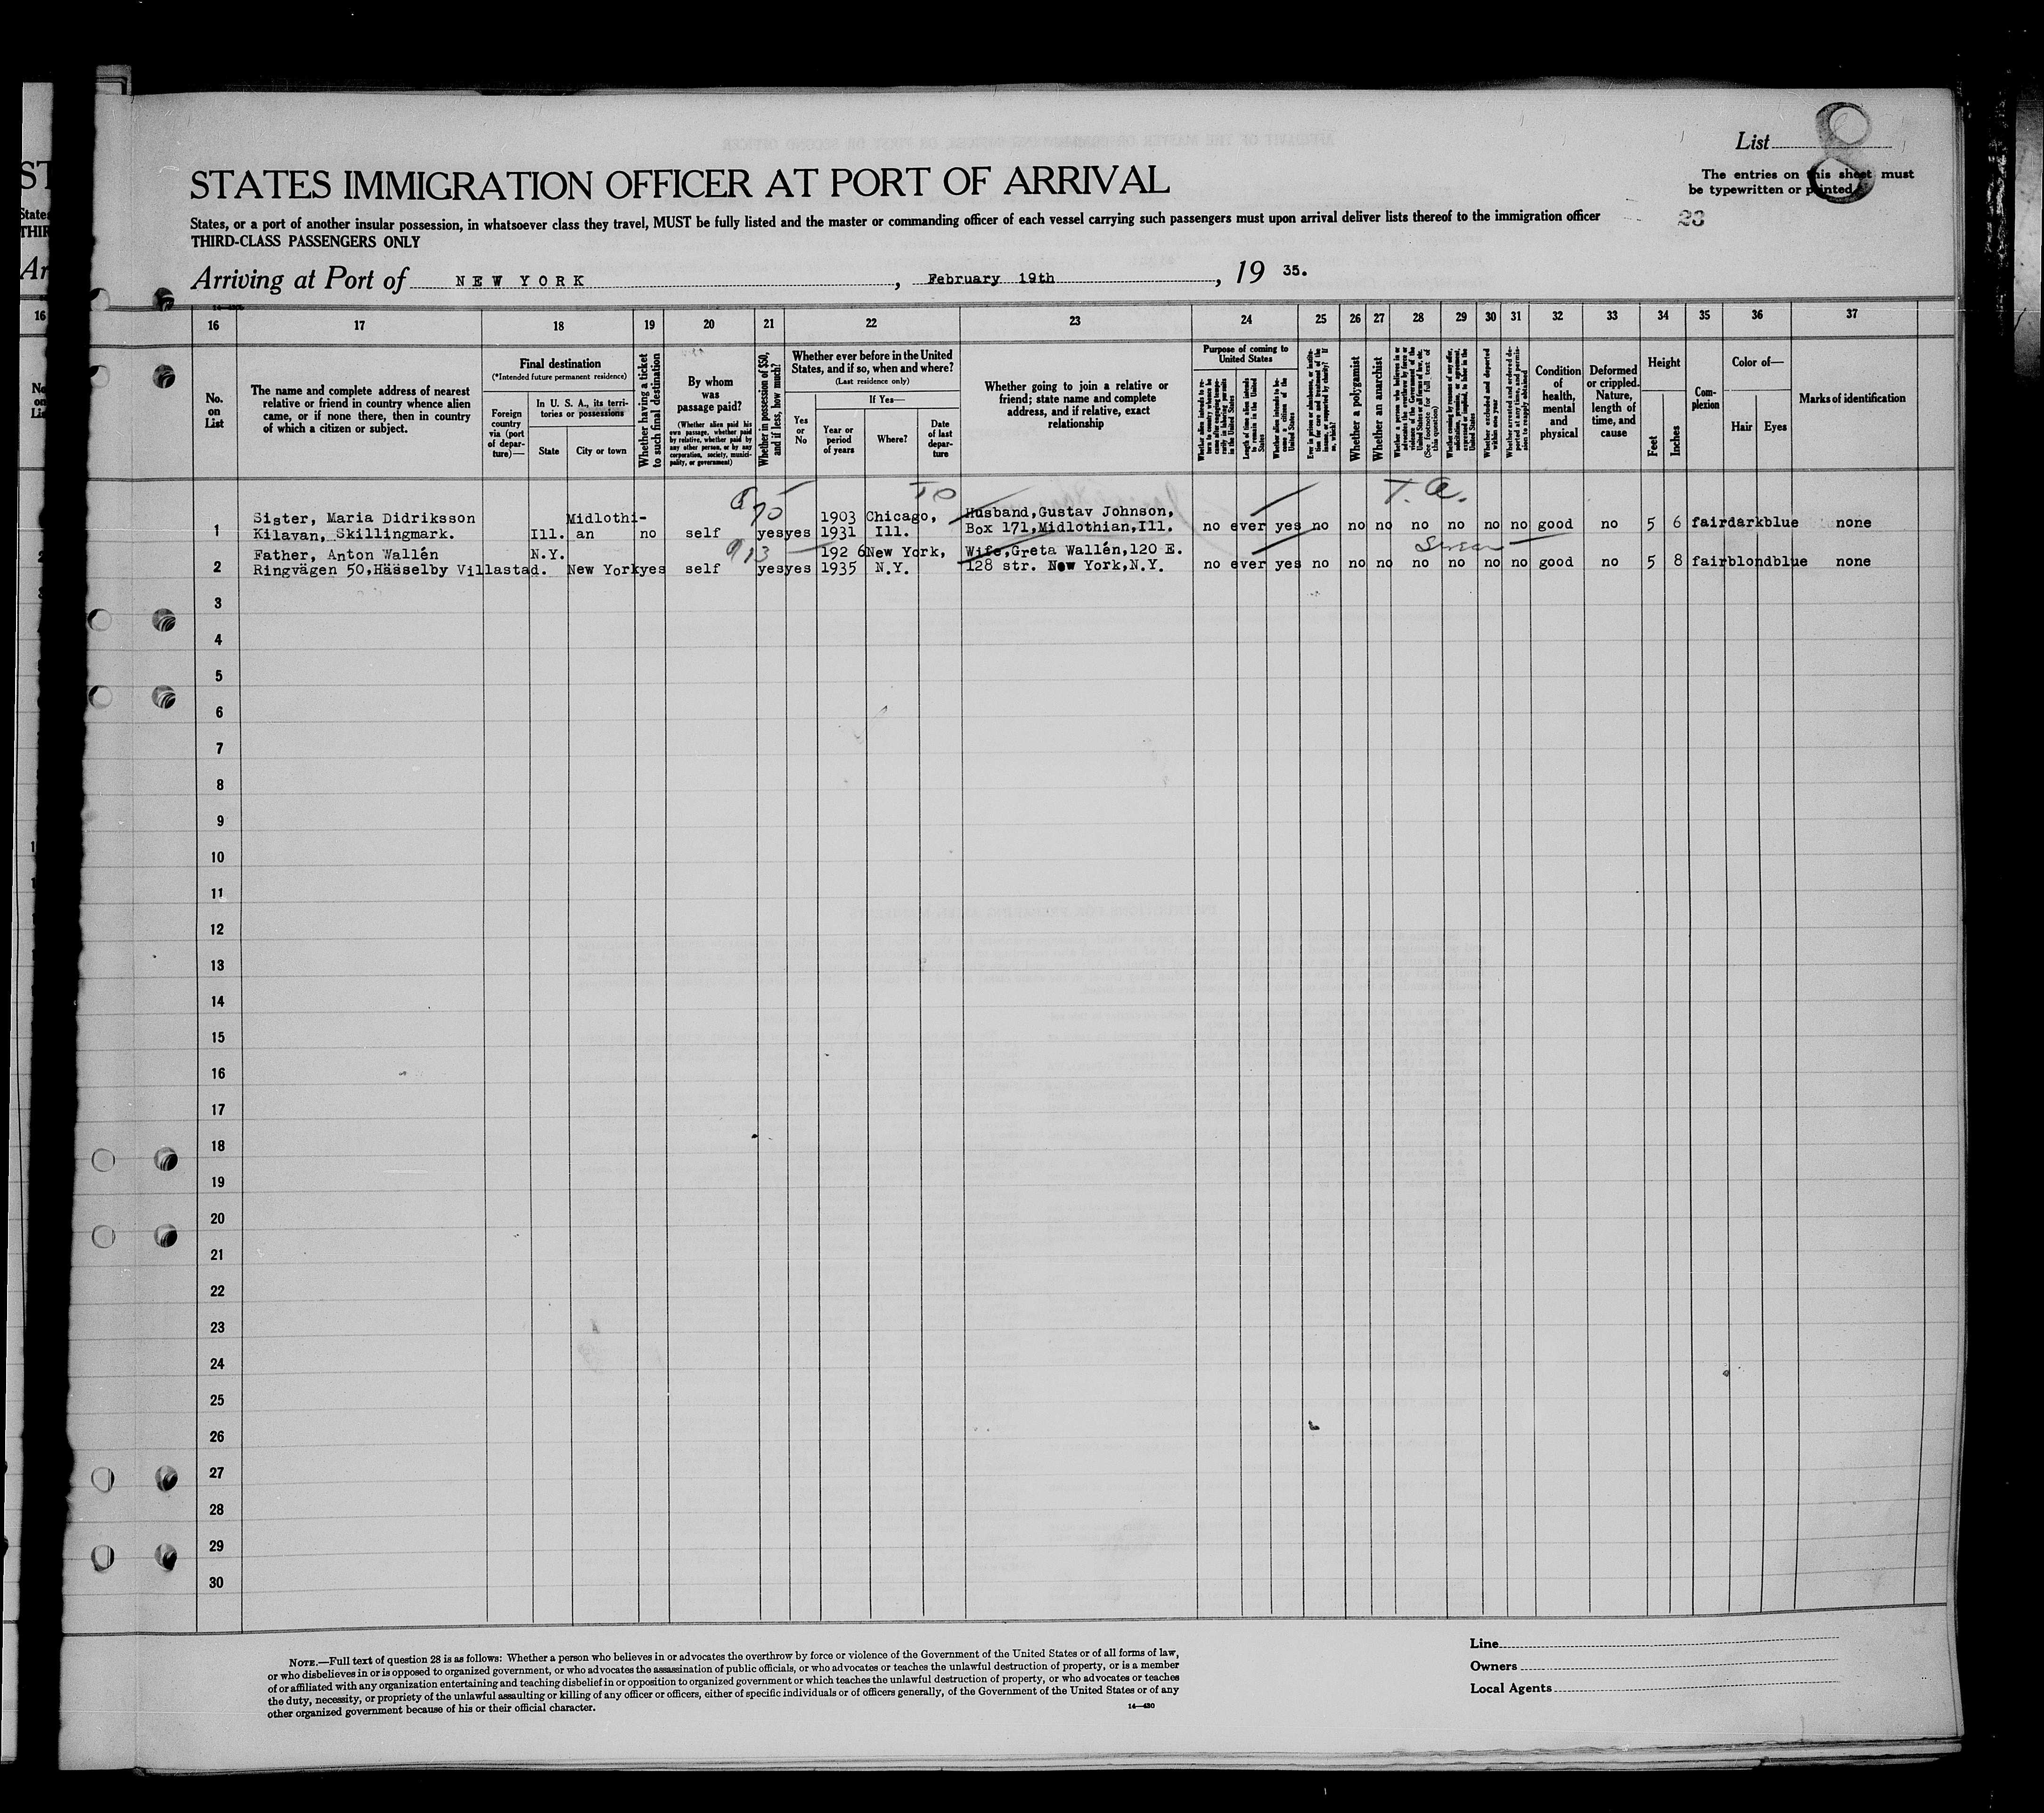 List 8
The entries on this sheet must
be typewritten or printed
23
STATES IMMIGRATION OFFICER AT PORT OF ARRIVAL
States, or a port of another insular possession, in whatsoever class they travel, MUST be fully listed and the master or commanding officer of each vessel carrying such passengers must upon arrival deliver lists thereof to the immigration officer
THIRD-CLASS PASSENGERS ONLY
Arriving at Port of NEW YORK, February 19th, 19 35.
16 17 18 19 20 21 22 23 24 25 26 27 28 29 30 31 32 33 34 35 36 37
No. on List
The name and complete address of nearest relative or friend in country whence alien came, or if none there, then in country of which a citizen or subject.
Final destination
(*Intended future permanent residence)
Foreign country via (port of departure)—
In U. S. A., its territories or possessions
State
City or town
Whether having a ticket to such final destination
By whom was passage paid?
(Whether alien paid his own passage, whether paid by relative, whether paid by any other person, or by any corporation, society, municipality, or government)
Whether in possession of $50, and if less, how much?
Whether ever before in the United States, and if so, when and where?
(Last residence only)
Yes or No
If Yes—
Year or period of years
Where?
Date of last departure
Whether going to join a relative or friend; state name and complete address, and if relative, exact relationship
Purpose of coming to United States
Length of time alien intends to remain in the United States
Whether alien intends to become a citizen of the United States
Whether a polygamist
Whether an anarchist
Condition of health, mental and physical
Deformed or crippled. Nature, length of time, and cause
Height
Feet
Inches
Complexion
Color of—
Hair
Eyes
Marks of identification
T. A.
Sister, Maria Didriksson Midlothi- 1903 Chicago, Husband,Gustav Johnson,
1 Kilavan, Skillingmark. Ill. an no self yes yes 1931 Ill. Box 171,Midlothian,Ill. no ever yes no no no no no no no good no 5 6 fair dark blue none
Father, Anton Wallén N.Y. 192 6 New York, Wife,Greta Wallén,120 E.
2 Ringvägen 50,Hässelby Villastad. New York yes self yes yes 1935 N.Y. 128 str. New York,N.Y. no ever yes no no no no no no no good no 5 8 fair blond blue none
3
4
5
6
7
8
9
10
11
12
13
14
15
16
17
18
19
20
21
22
23
24
25
26
27
28
29
30
NOTE.—Full text of question 28 is as follows: Whether a person who believes in or advocates the overthrow by force or violence of the Government of the United States or of all forms of law,
or who disbelieves in or is opposed to organized government, or who advocates the assassination of public officials, or who advocates or teaches the unlawful destruction of property, or is a member
of or affiliated with any organization entertaining and teaching disbelief in or opposition to organized government or which teaches the unlawful destruction of property, or who advocates or teaches
the duty, necessity, or propriety of the unlawful assaulting or killing of any officer or officers, either of specific individuals or of officers generally, of the Government of the United States or of any
other organized government because of his or their official character.
14—430
Line
Owners
Local Agents